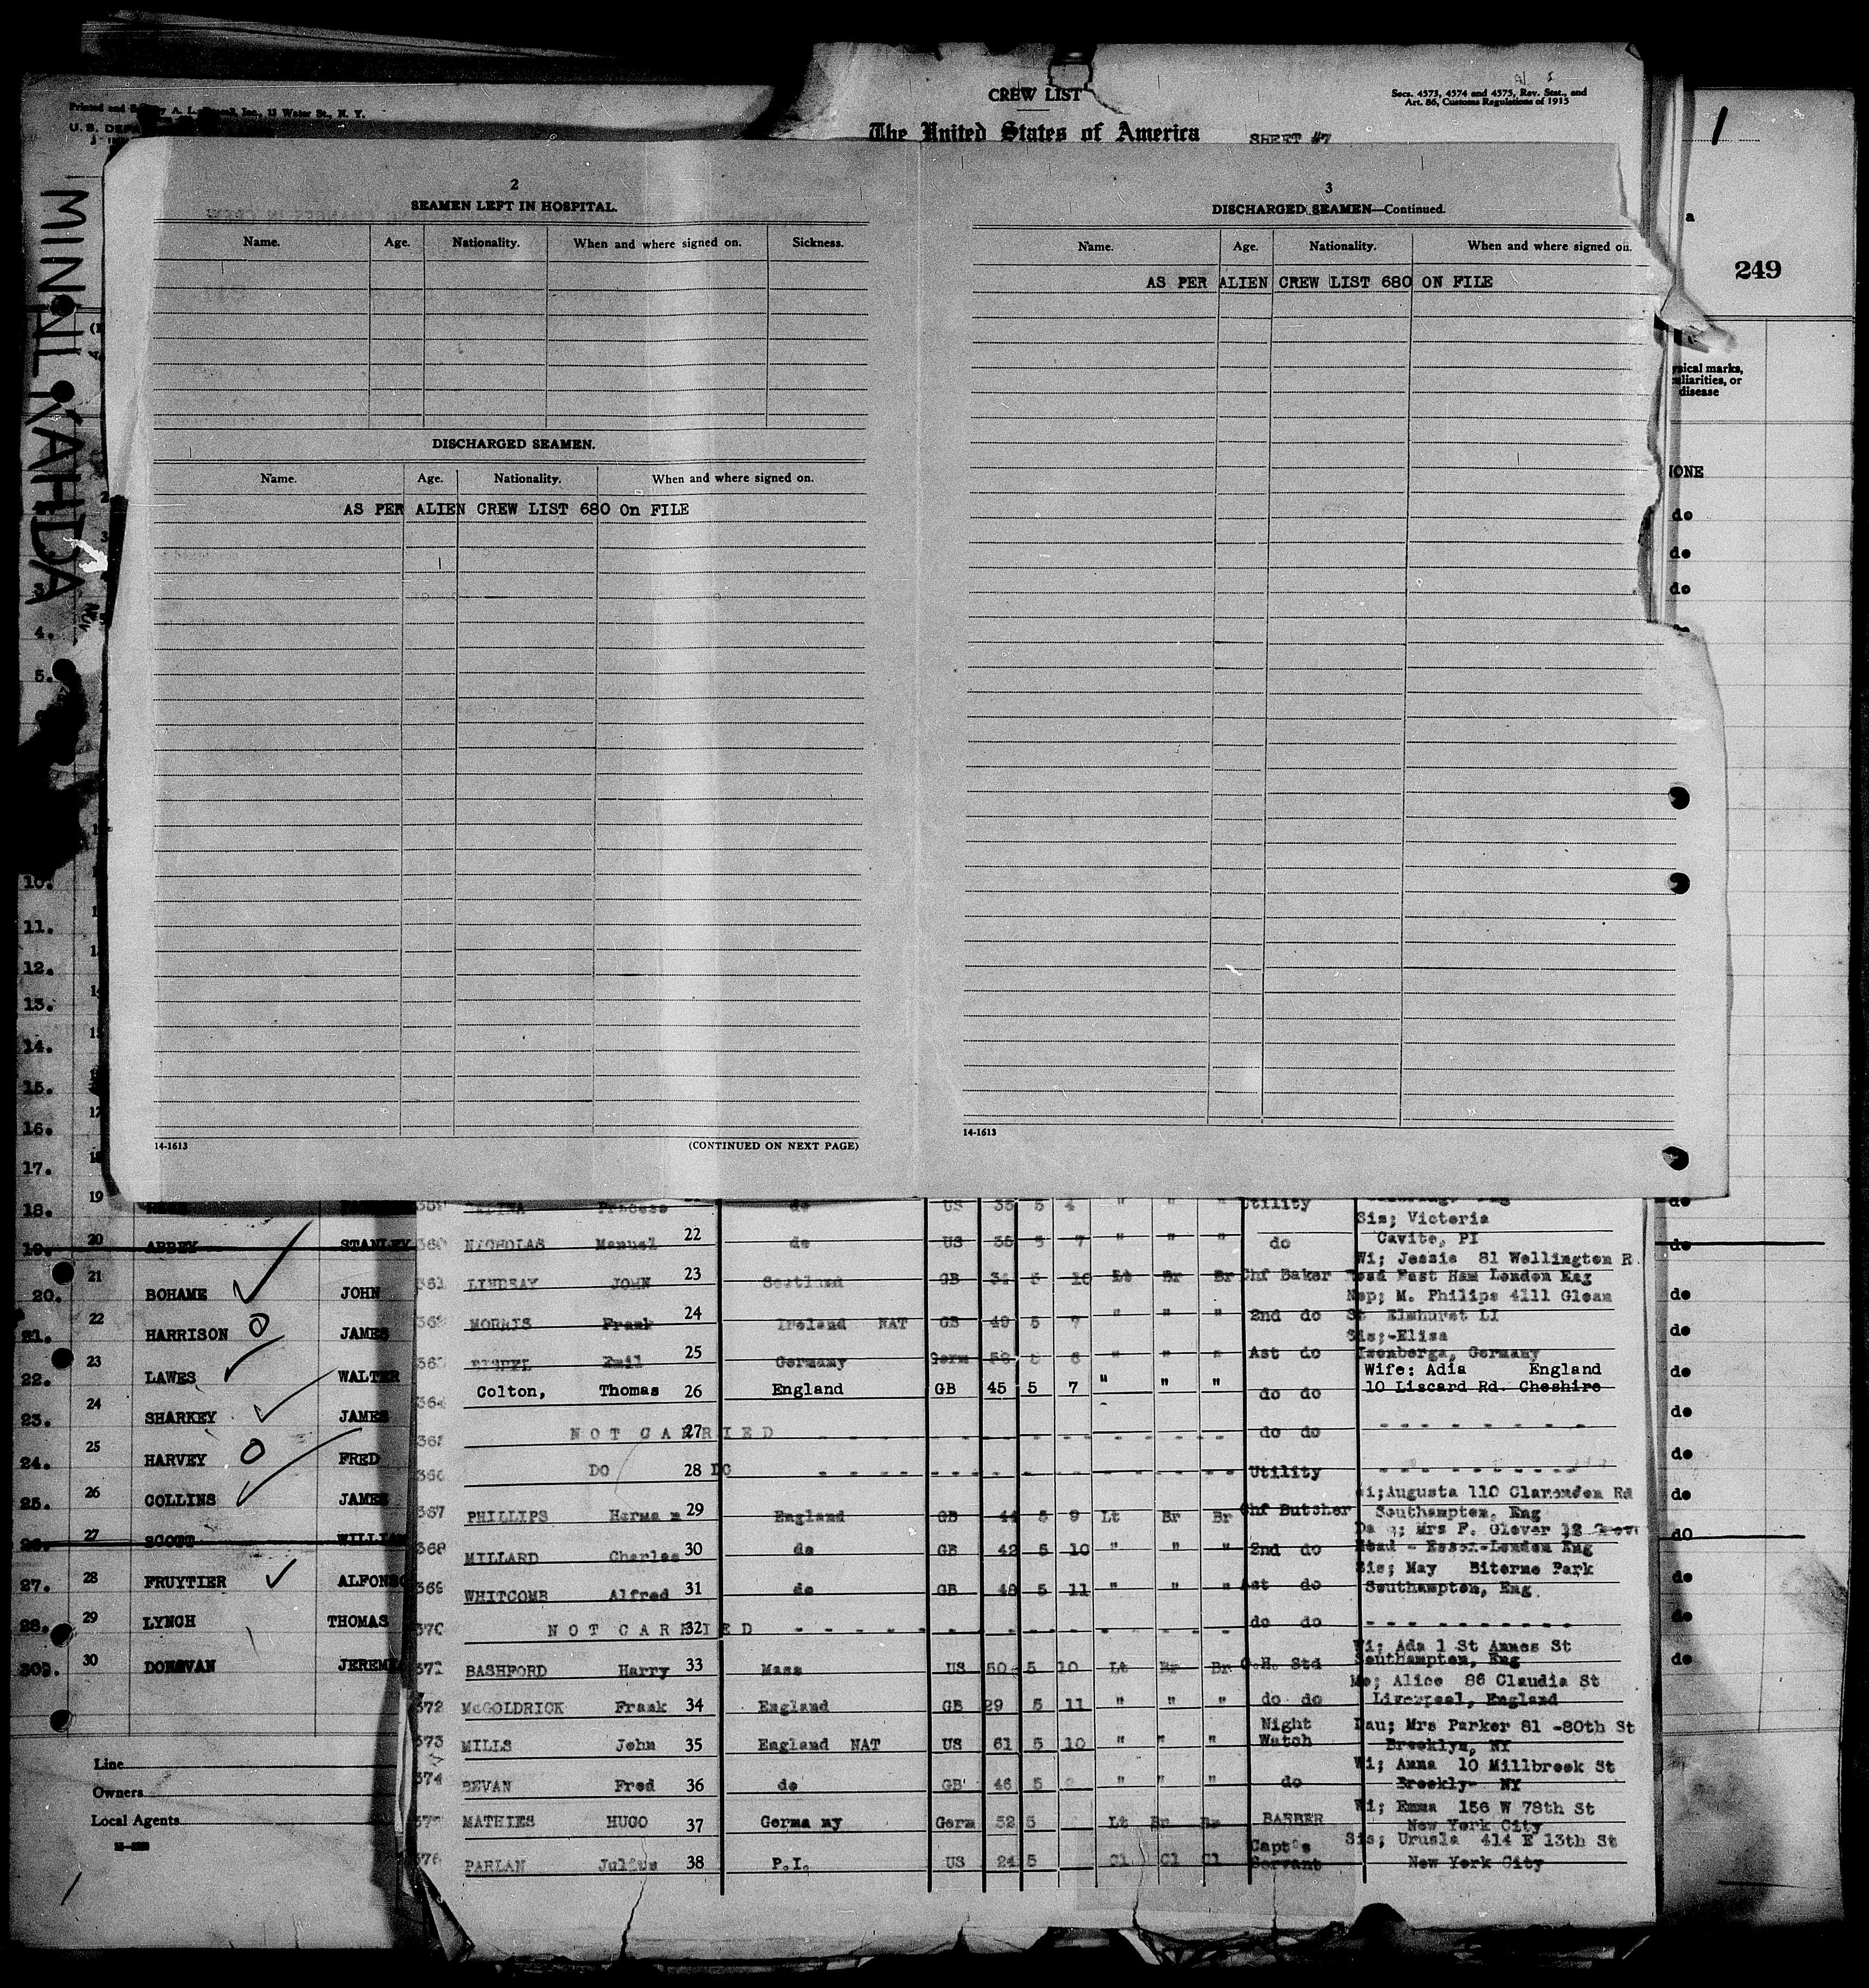 CREW LIST
Secs. 4573, 4574 and 4575, Rev. Stat., and
Art. 86, Customs Regulations of 1915
Printed and A. L. Inc., 13 Water St., N. Y.
The United States of America SHEET #7
U. S.
MINNEKAHDA
249
2
SEAMEN LEFT IN HOSPITAL.
Name. Age. Nationality. When and where signed on. Sickness.
DISCHARGED SEAMEN.
Name. Age. Nationality. When and where signed on.
AS PER ALIEN CREW LIST 680 On FILE
14-1613 (CONTINUED ON NEXT PAGE)
3
DISCHARGED SEAMEN—Continued.
Name. Age. Nationality. When and where signed on.
AS PER ALIEN CREW LIST 680 ON FILE
14-1613
marks,
or
disease
NONE
do
do
do
4.
5.
10.
11.
12.
13.
14.
15.
16.
17.
18. 19
19. 20 ABBEY STANLEY
20. 21 BOHAME JOHN
21. 22 HARRISON JAMES
22. 23 LAWES WALTER
23. 24 SHARKEY JAMES
24. 25 HARVEY FRED
25. 26 COLLINS JAMES
26. 27 SCOTT WILLIAM
27. 28 FRUYTIER ALFONSO
28. 29 LYNCH THOMAS
30 DONOVAN JEREMI
Line
Owners
Local Agents
359 do US 35 5 4 " " " Utility
Sis; Victoria
360 NICHOLAS Manuel 22 do US 35 5 7 " " " do Cavite, PI
Wi; Jessie 81 Wellington R
361 LINDSAY JOHN 23 Scotland GB 34 5 10 Lt Br Br Chf Baker Road East Ham London Eng
Nep; M. Philips 4111 Gleam
362 MORRIS Frank 24 Ireland NAT GB 49 5 7 " " " 2nd do St Elmhurst LI
Sis;-Elisa
363 Emil 25 Germany Germ 6 " " " Ast do Germany
Wife: Adia England
364 Colton, Thomas 26 England GB 45 5 7 " " " do do 10 Liscard Rd. Cheshire
365 NOT CARRIED 27 do do
366 DO 28 DO Utility
Wi;Augusta 110 Clarendon Rd
367 PHILLIPS Herman 29 England GB 44 5 9 Lt Br Br Chf Butcher Southampton, Eng
Mrs F. Glover 12 Grove
368 MILLARD Charles 30 do GB 42 5 10 " " " 2nd do Road - Essex-London Eng
Sis; May Biterne Park
369 WHITCOMB Alfred 31 do GB 48 5 11 " " " Ast do Southampton, Eng
370 NOT CARRIED 32 do do
Wi; Ada 1 St Annes St
371 BASHFORD Harry 33 Mass US 50 5 10 Lt Br Br G.H. Std Southampton, Eng
Mo; Alice 86 Claudia St
372 McGOLDRICK Frank 34 England GB 29 5 11 " " " do do Liverpool, England
Night Dau; Mrs Parker 81 -80th St
373 MILLS John 35 England NAT US 61 5 10 " " " Watch Brooklyn, NY
Wi; Anna 10 Millbrook St
374 BEVAN Fred 36 do GB 46 5 " " " do Brookly- NY
Wi; Emma 156 W 78th St
MATHIES HUGO 37 Germany Germ 52 5 Lt Br Br BARBER New York City
Capt's Sis; Ursula 414 E 13th St
376 PARLAN Julius 38 P.I. US 24 5 Cl Cl Cl Servant New York City
do
do
do
do
do
do
do
do
dO
do
do
do